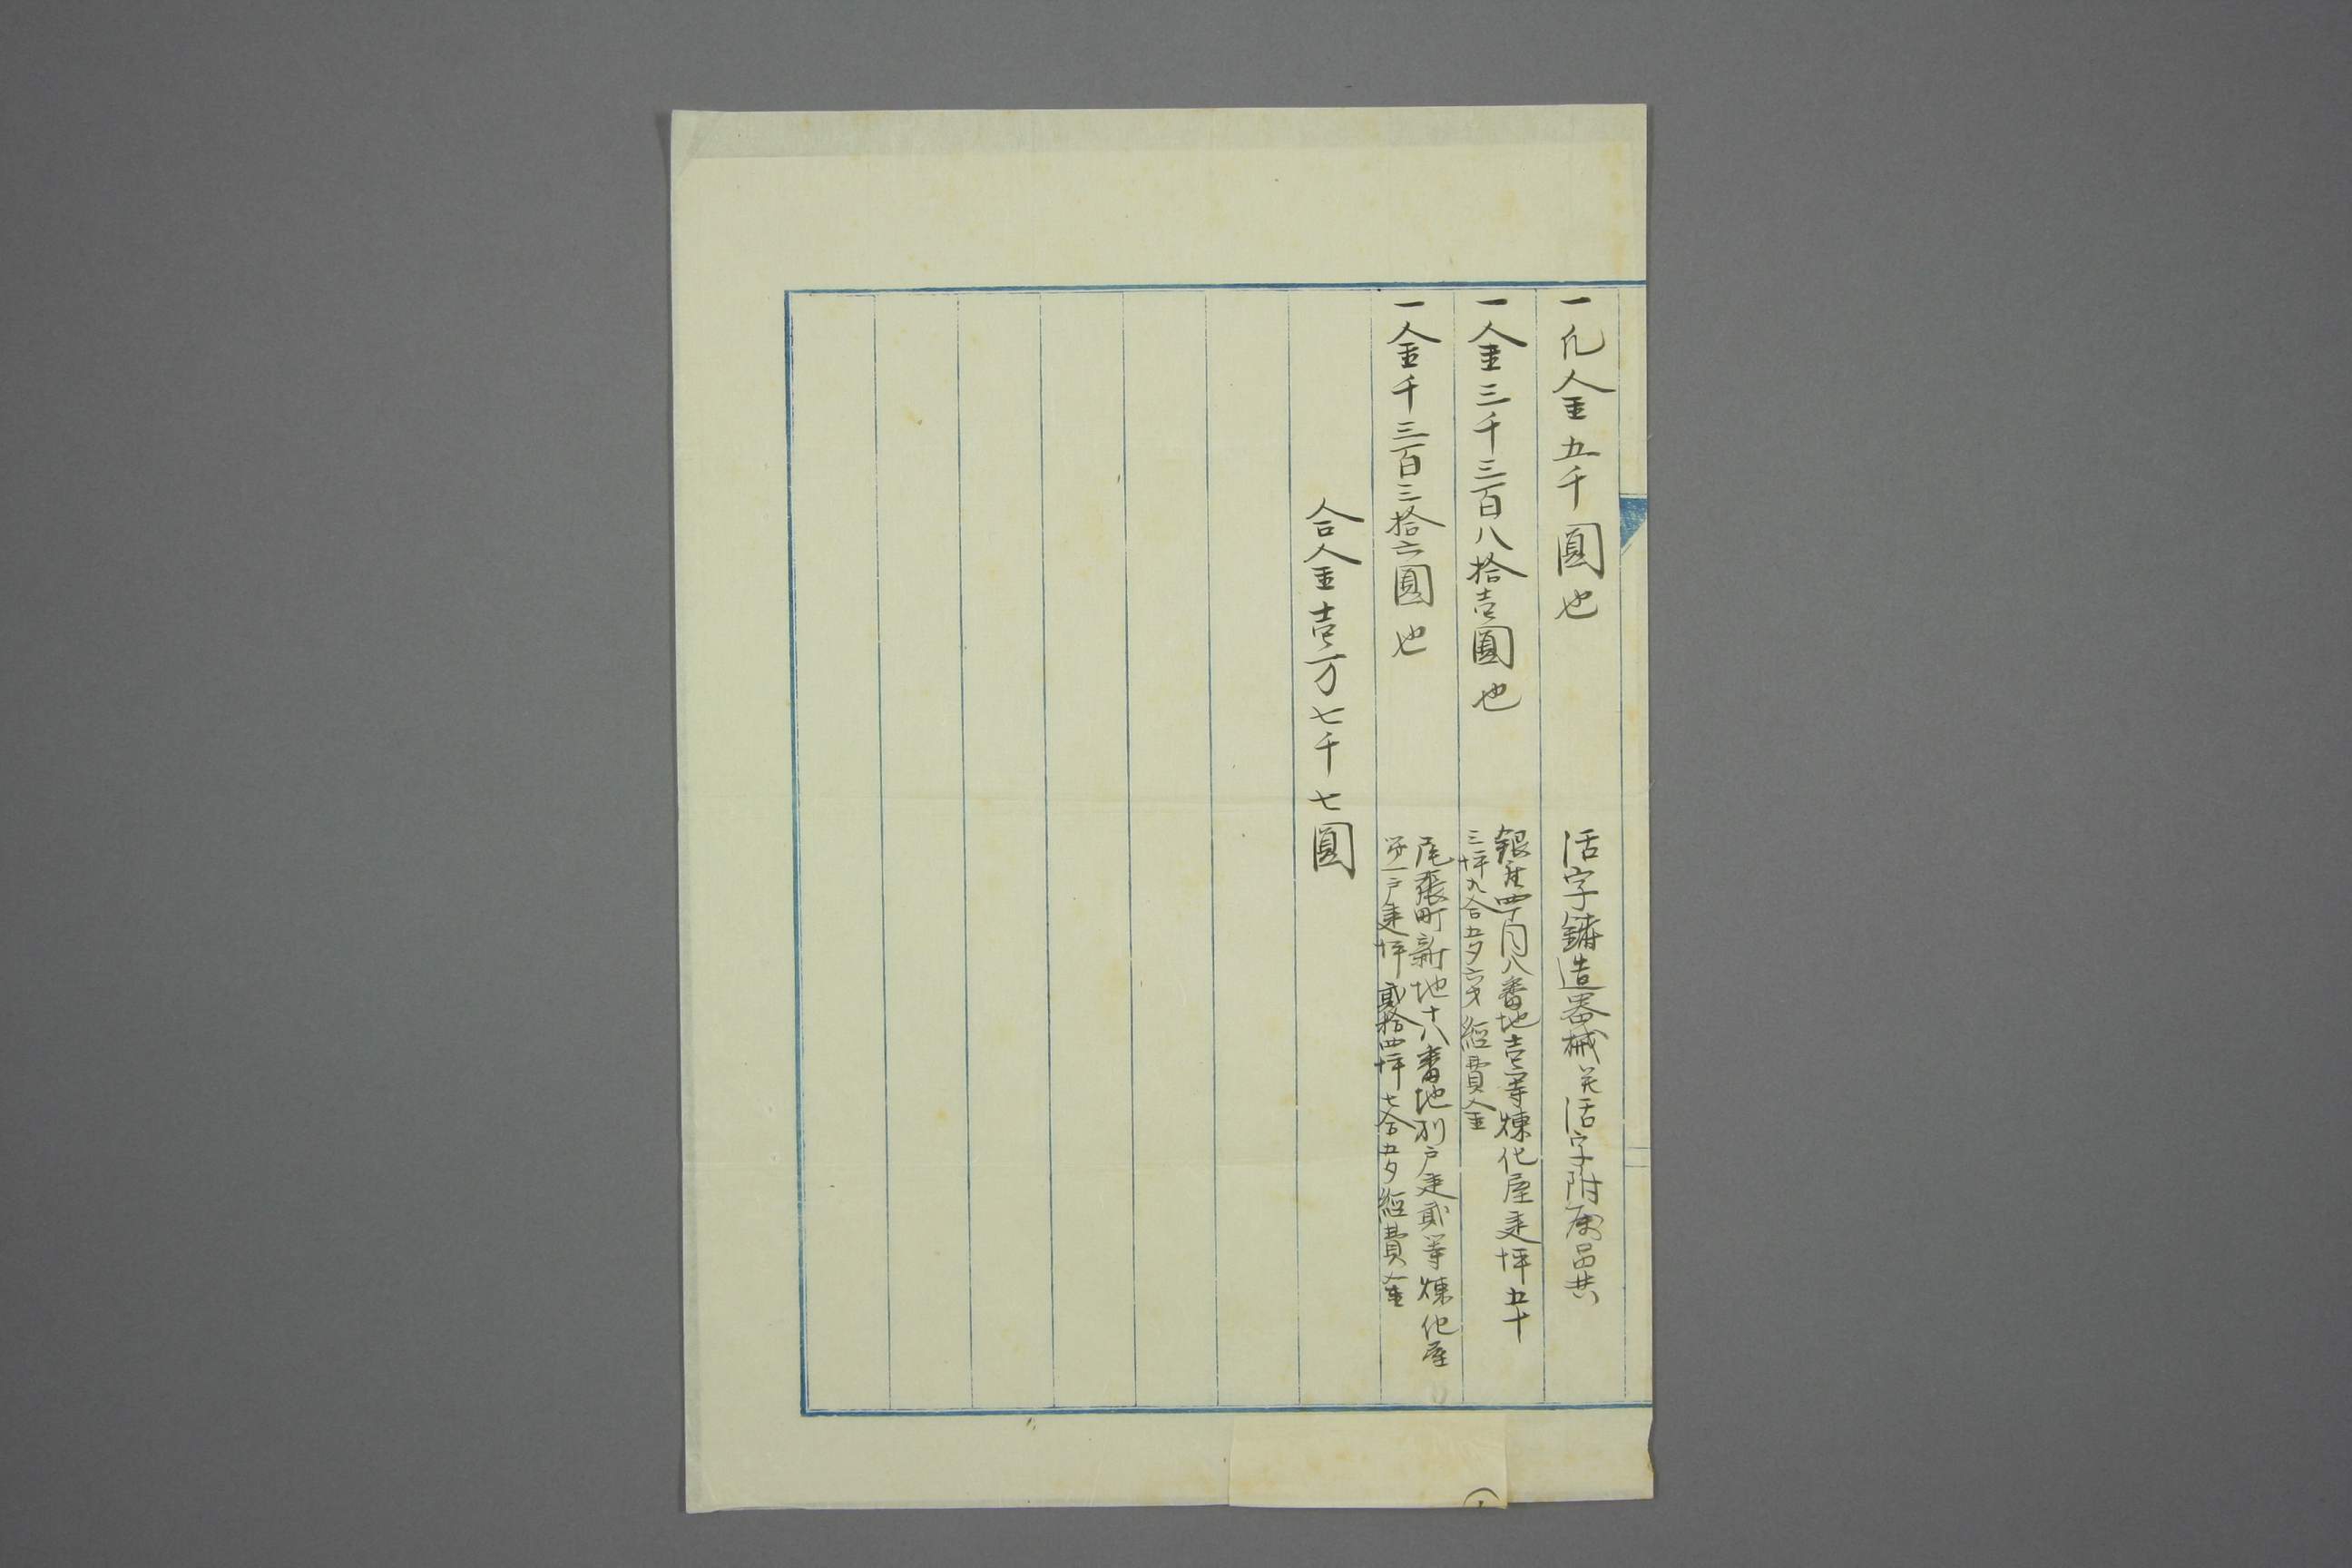 一凡金五千圓也 活字鋳造器械并活字附属品共
一金三千三百八拾壱圓也 銀座四丁目八番地壱等煉化屋建坪五十
三坪九合五夕六才経費金
一金千三百三拾六圓也 尾張町新地十八番地列戸建貳等煉化屋
第一戸建坪貳拾四坪七合五夕経費金
合金壱万七千七圓